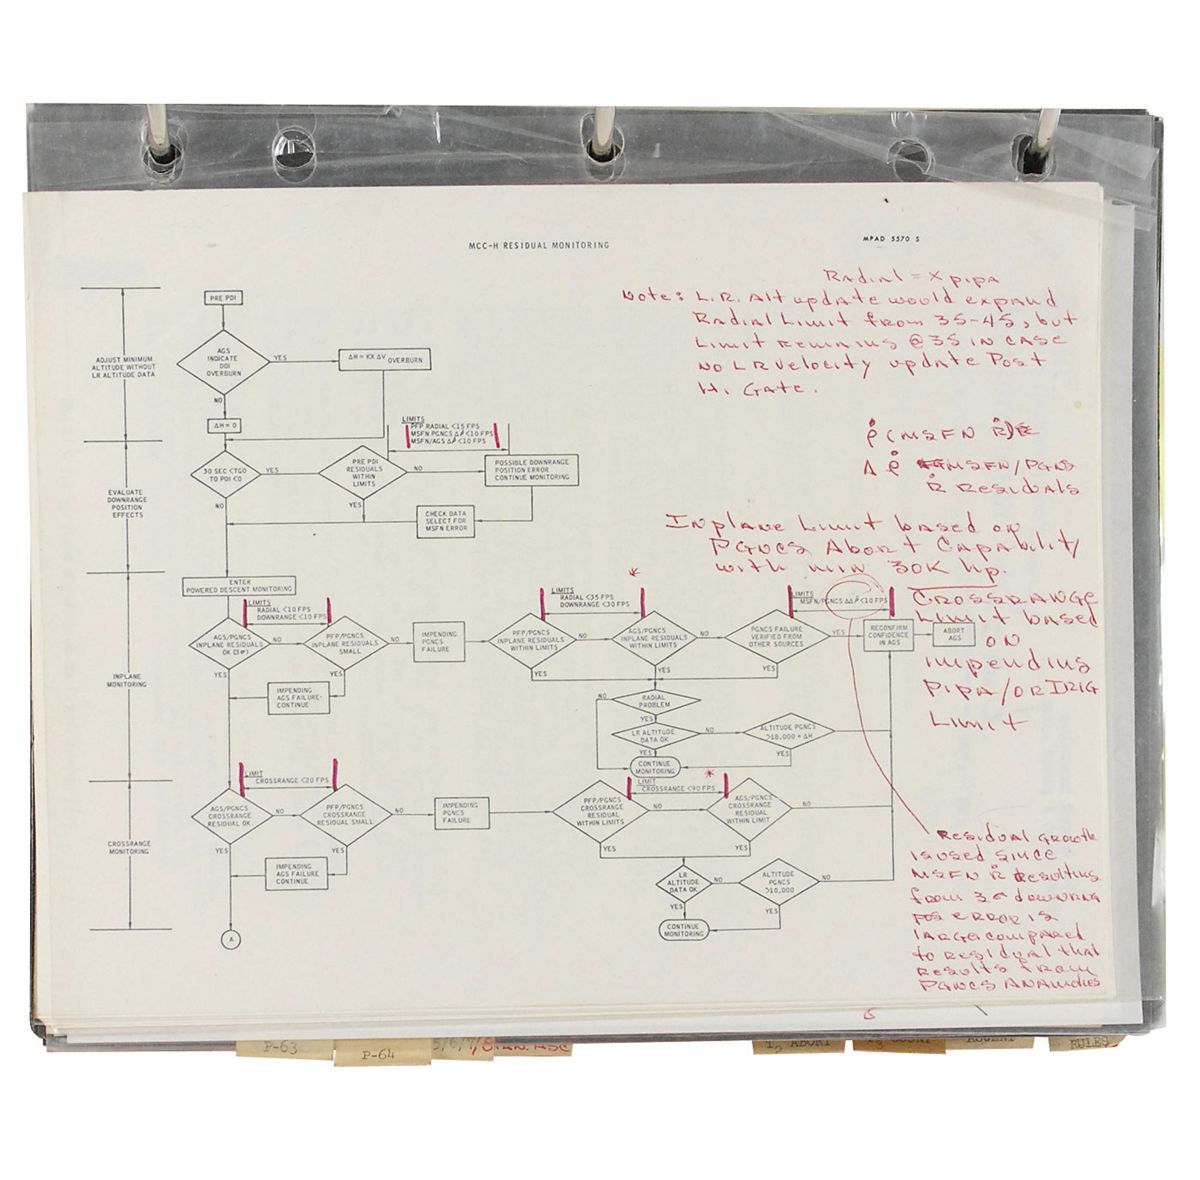 MCC-H RESIDUAL MONITORING
MPAD 5570 S
Radial = X pipa
Note: L.R. Alt update would expand
Radial Limit from 35-45, but
Limit remains @ 35 in case
no LR Velocity update Post
Hi Gate.
ρ̇ (MSFN Ṙ)
Δ ρ̇ MSFN/PGNS
Ṙ Residuals
Inplane Limit based on
PGNCS Abort Capability
with min 30K hp.
CROSSRANGE
Limit based
on
impending
PIPA/or IRIG
Limit
Residual Growth
is used since
MSFN Ṙ resulting
from 3σ downrng
pos error is
large compared
to residual that
results from
PGNCS Anamolies
ADJUST MINIMUM
ALTITUDE WITHOUT
LR ALTITUDE DATA
EVALUATE
DOWNRANGE
POSITION
EFFECTS
INPLANE
MONITORING
CROSSRANGE
MONITORING
PRE PDI
AGS
INDICATE
DOI
OVERBURN
YES
ΔH = KX ΔV OVERBURN
NO
ΔH = 0
LIMITS
PFP RADIAL <15 FPS
MSFN PGNCS Δρ̇ <10 FPS
MSFN/AGS Δρ̇ <10 FPS
30 SEC <TGO
TO PDI <0
YES
NO
PRE PDI
RESIDUALS
WITHIN
LIMITS
NO
YES
POSSIBLE DOWNRANGE
POSITION ERROR
CONTINUE MONITORING
CHECK DATA
SELECT FOR
MSFN ERROR
ENTER
POWERED DESCENT MONITORING
LIMITS
RADIAL <10 FPS
DOWNRANGE <10 FPS
AGS/PGNCS
INPLANE RESIDUALS
OK (3σ)
NO
YES
PFP/PGNCS
INPLANE RESIDUALS
SMALL
NO
YES
IMPENDING
AGS FAILURE-
CONTINUE
IMPENDING
PGNCS
FAILURE
LIMITS
RADIAL <35 FPS
DOWNRANGE <30 FPS
*
PFP/PGNCS
INPLANE RESIDUALS
WITHIN LIMITS
NO
YES
AGS/PGNCS
INPLANE RESIDUALS
WITHIN LIMITS
NO
YES
LIMITS
MSFN/PGNCS ΔΔρ̇ <10 FPS
PGNCS FAILURE
VERIFIED FROM
OTHER SOURCES
YES
YES
RECONFIRM
CONFIDENCE
IN AGS
ABORT
AGS
RADIAL
PROBLEM
NO
YES
LR ALTITUDE
DATA OK
NO
YES
ALTITUDE PGNCS
>10,000 + ΔH
YES
CONTINUE
MONITORING
LIMIT
CROSSRANGE <20 FPS
AGS/PGNCS
CROSSRANGE
RESIDUAL OK
NO
YES
PFP/PGNCS
CROSSRANGE
RESIDUAL SMALL
NO
YES
IMPENDING
AGS FAILURE
CONTINUE
IMPENDING
PGNCS
FAILURE
LIMIT
CROSSRANGE <90 FPS
*
PFP/PGNCS
CROSSRANGE
RESIDUAL
WITHIN LIMITS
NO
YES
AGS/PGNCS
CROSSRANGE
RESIDUAL
WITHIN LIMIT
NO
YES
LR
ALTITUDE
DATA OK
NO
YES
ALTITUDE
PGNCS
>10,000
NO
YES
CONTINUE
MONITORING
A
P-63
P-64
ABORT
ASCENT
RULES